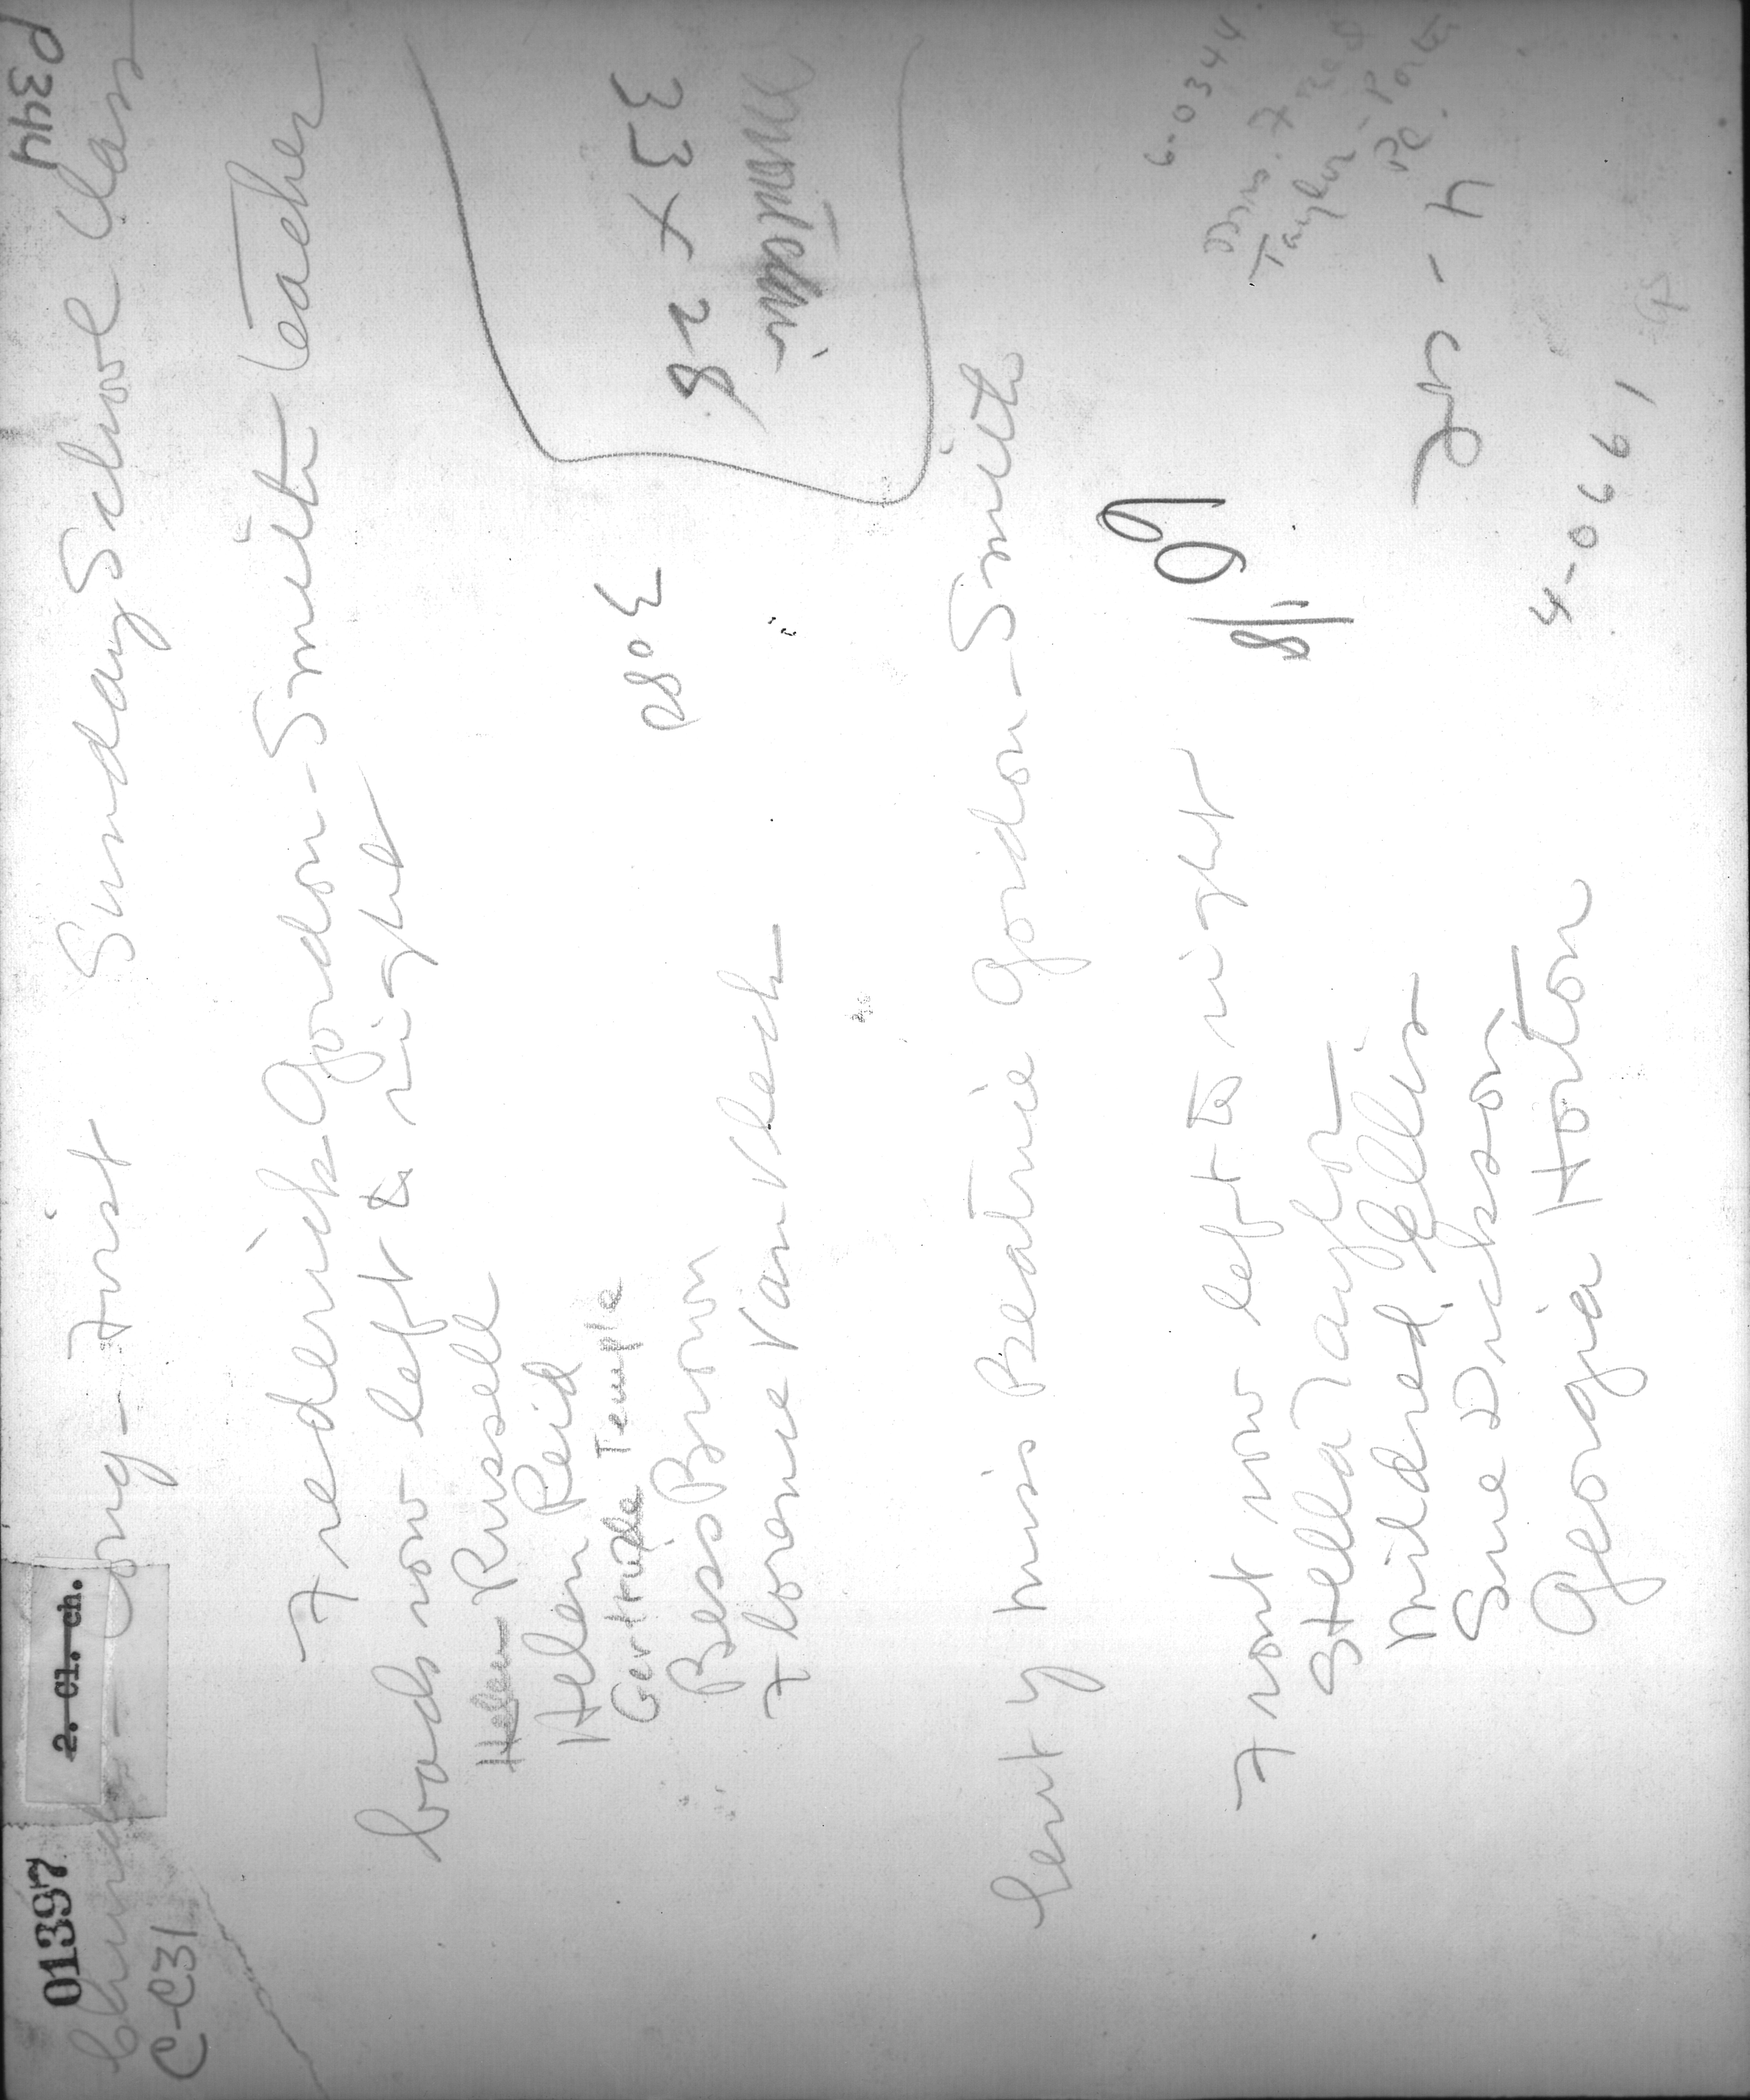 01397
2. Cl. ch.
P344
Church - Cong - First Sunday School Class
C-C31
Frederick Gordon-Smith teacher
back row left to right
Helen Russell
Helen Reid
Gertrude Temple
Bess Brown
Florence Van Vleck
P803
8 2 x 3 3
Cent y Miss Beatrice Gordon-Smith
Front row left to right
Stella Taylor
Mildred Ellis
Sue Dickson
Georgia Horton
6-0344
Mrs. Fred
Taylor - Porter
Pl.
4-0661